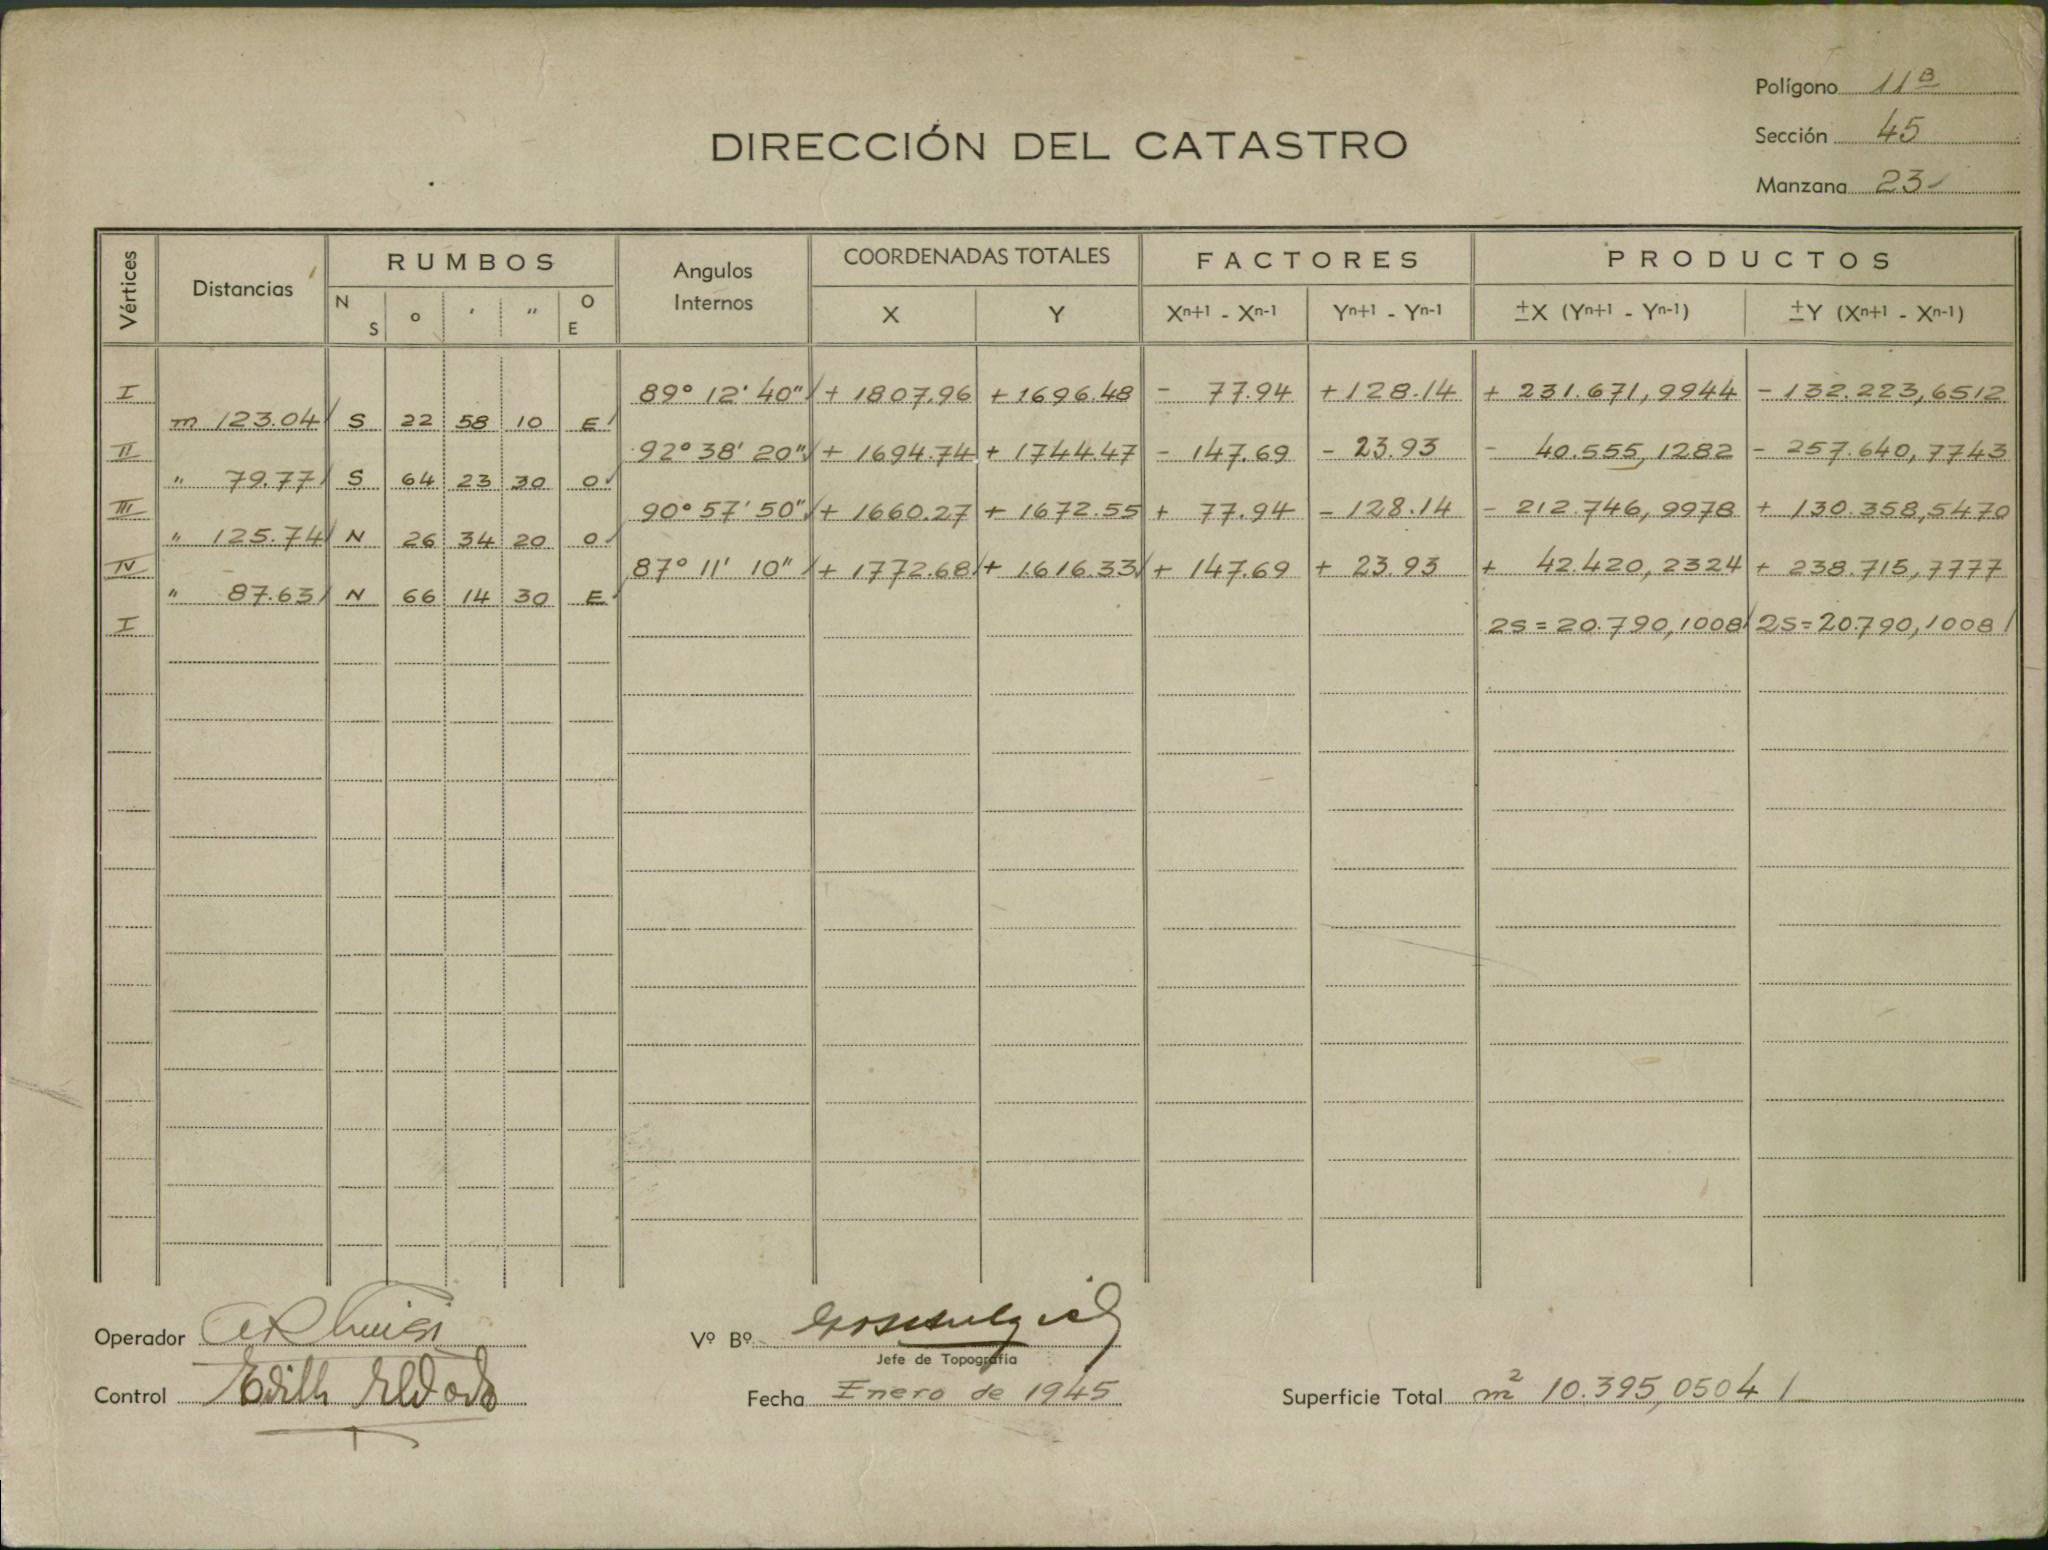 Polígono 11B
DIRECCIÓN DEL CATASTRO
Sección 45
Manzana 23
Vértices Distancias RUMBOS Angulos Internos COORDENADAS TOTALES FACTORES PRODUCTOS
N S ° ' " O E X Y Xn+1 - Xn-1 Yn+1 - Yn-1 ±X (Yn+1 - Yn-1) ±Y (Xn+1 - Xn-1)
I 89° 12' 40" + 1807.96 + 1696.48 - 77.94 + 128.14 + 231.671,9944 - 132.223,6512
m 123.04 S 22 58 10 E
II 92° 38' 20" + 1694.74 + 1744.47 - 147.69 - 23.93 - 40.555,1282 - 257.640,7743
" 79.77 S 64 23 30 O
III 90° 57' 50" + 1660.27 + 1672.55 + 77.94 - 128.14 - 212.746,9978 + 130.358,5470
" 125.74 N 26 34 20 O
IV 87° 11' 10" + 1772.68 + 1616.33 + 147.69 + 23.93 + 42.420,2324 + 238.715,7777
" 87.63 N 66 14 30 E
I 2S = 20.790,1008 2S = 20.790,1008
Operador
Vº Bº
Jefe de Topografía
Control Edith
Fecha Enero de 1945
Superficie Total m² 10.395,0504